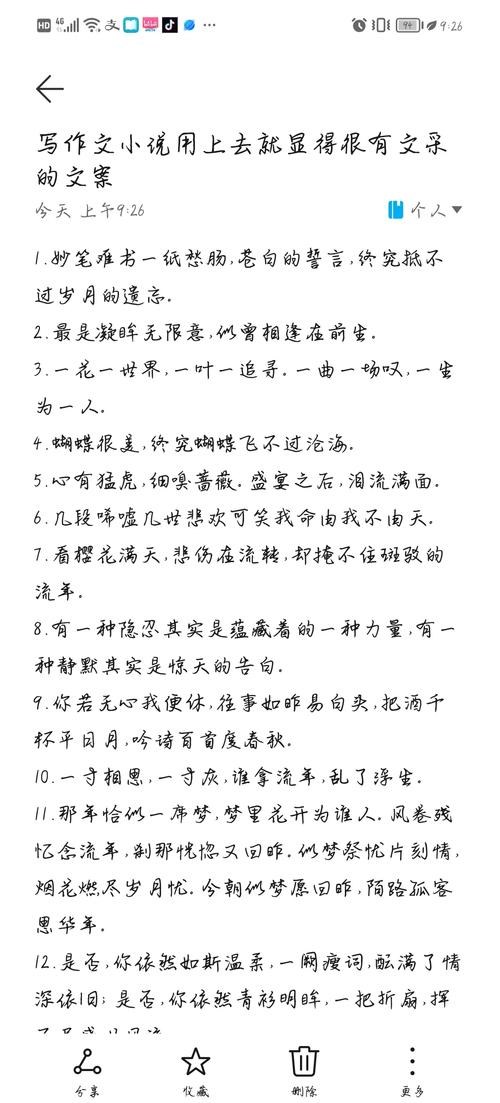 HD 4G 支 94 9:26
写作文小说用上去就显得很有文采
的文案
今天 上午9:26 个人
1.妙笔难书一纸愁肠,苍白的誓言,终究抵不
过岁月的遗忘。
2.最是凝眸无限意,似曾相逢在前生。
3.一花一世界,一叶一追寻。一曲一场叹,一生
为一人。
4.蝴蝶很美,终究蝴蝶飞不过沧海。
5.心有猛虎,细嗅蔷薇。盛宴之后,泪流满面。
6.几段唏嘘几世悲欢可笑我命由我不由天。
7.看樱花满天,悲伤在流转,却掩不住斑驳的
流年。
8.有一种隐忍其实是蕴藏着的一种力量,有一
种静默其实是惊天的告白。
9.你若无心我便休,往事如昨易白头,把酒千
杯平日月,吟诗百首度春秋。
10.一寸相思,一寸灰,谁拿流年,乱了浮生。
11.那年恰似一席梦,梦里花开为谁人。风卷残
忆念流年,刹那恍惚又回昨。似梦祭忧片刻情,
烟花燃尽岁月忧。今朝似梦愿回昨,陌路孤客
思华年。
12.是否,你依然如斯温柔,一阙瘦词,酝满了情
深依旧;是否,你依然青衫明眸,一把折扇,挥
分享 收藏 删除 更多